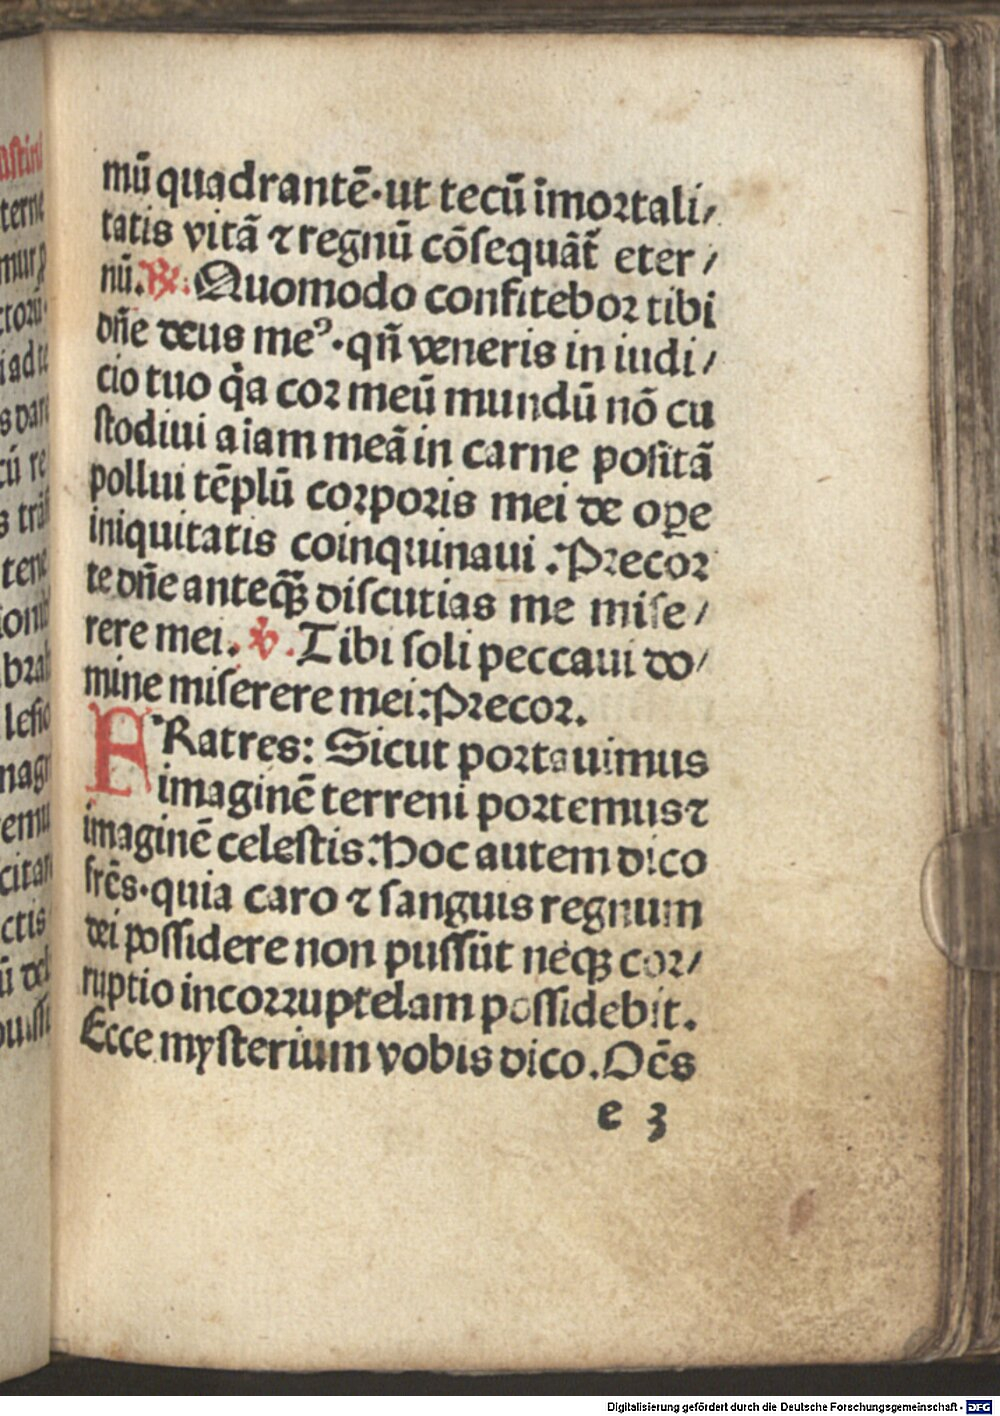 mū quadrantē·ut tecū īmortali⸗
tatis vitã ⁊ regnū cōsequãt̄ eter⸗
nū.℟.Quomodo confitebor tibi
dñe deus me⁹·qñ veneris in iudi⸗
cio tuo q̇a cor meū mundū nō cu
ſtodiui aiam meã in carne poſitã
pollui tēplū corporis mei de oꝑe
iniquitatis coinquinaui.Precor
te dñe anteqꝫ̃ diſcutias me miſe⸗
rere mei.℣.Tibi ſoli peccaui do⸗
mine miſerere mei:Precor.
FRatres: Sicut portauimus
imaginē terreni portemus ⁊
imaginē celeſtis:Hoc autem dico
frēs·quia caro ⁊ ſanguis regnum
dei poſſidere non puſſūt neqꝫ cor⸗
ruptio incorruptelam poſſidebit.
Ecce myſterium vobis dico.Oēs
e 3
Digitalisierung gefördert durch die Deutsche Forschungsgemeinschaft - DFG